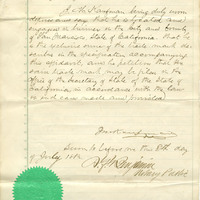 being duly sworn
deposes and say that he is located and
engaged in business in the City and County
of San Francisco State of California that he
is the exclusive owner of the trade mark des-
cribed in the designation accompanying
this affidavit and he petitions that the
said trade mark may be filed in the
office of the Secretary of State of the State of
California in accordance with the law
in such case made and provided
Sworn to before me this 8th day
of July 188
Notary Public